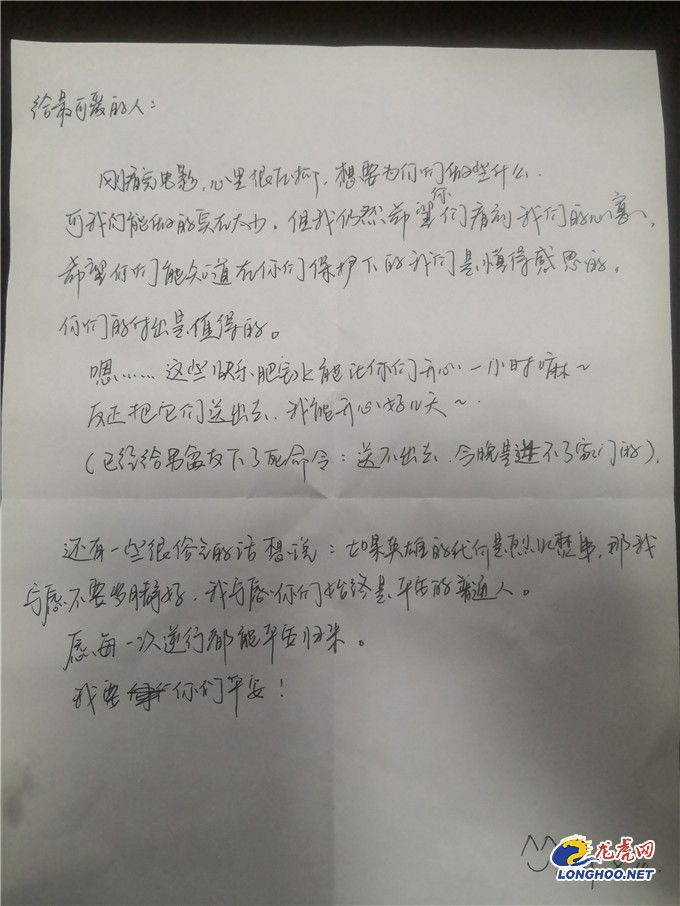 给最可爱的人：
刚看完电影，心里很压抑，想要为你们做些什么．
可我们能做的实在太少。但我仍然希望你们看到我们的心意，
希望你们能知道在你们保护下的我们是懂得感恩的。
你们的付出是值得的。
嗯……这些快乐肥宅水能让你们开心一小时嘛～
反正把它们送出去，我能开心好几天～．
（已经给男室友下了死命令：送不出去，今晚是进不了家门的）．
还有一些很俗气的话想说：如果英雄的代价是烈火焚身，那我
宁愿不要岁月静好，我宁愿你们始终是平安的普通人。
愿每一次逆行都能平安归来。
我要你们平安！
龙虎网
LONGHOO.NET